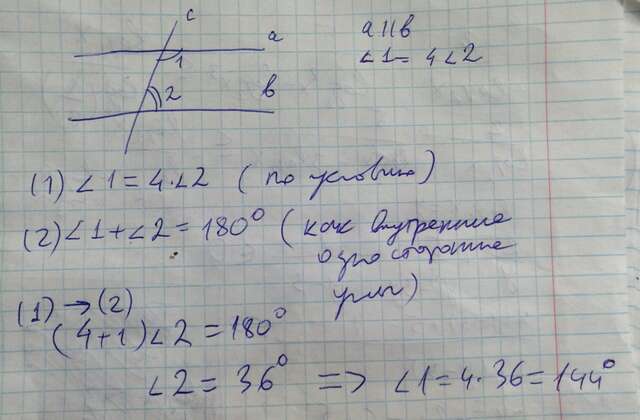 c
a
1
2
b
a ∥ b
∠1 = 4∠2
(1) ∠1 = 4·∠2 (по условию)
(2) ∠1 + ∠2 = 180° (как внутренние
односторонние
углы)
(1) → (2)
(4+1)∠2 = 180°
∠2 = 36° => ∠1 = 4·36 = 144°